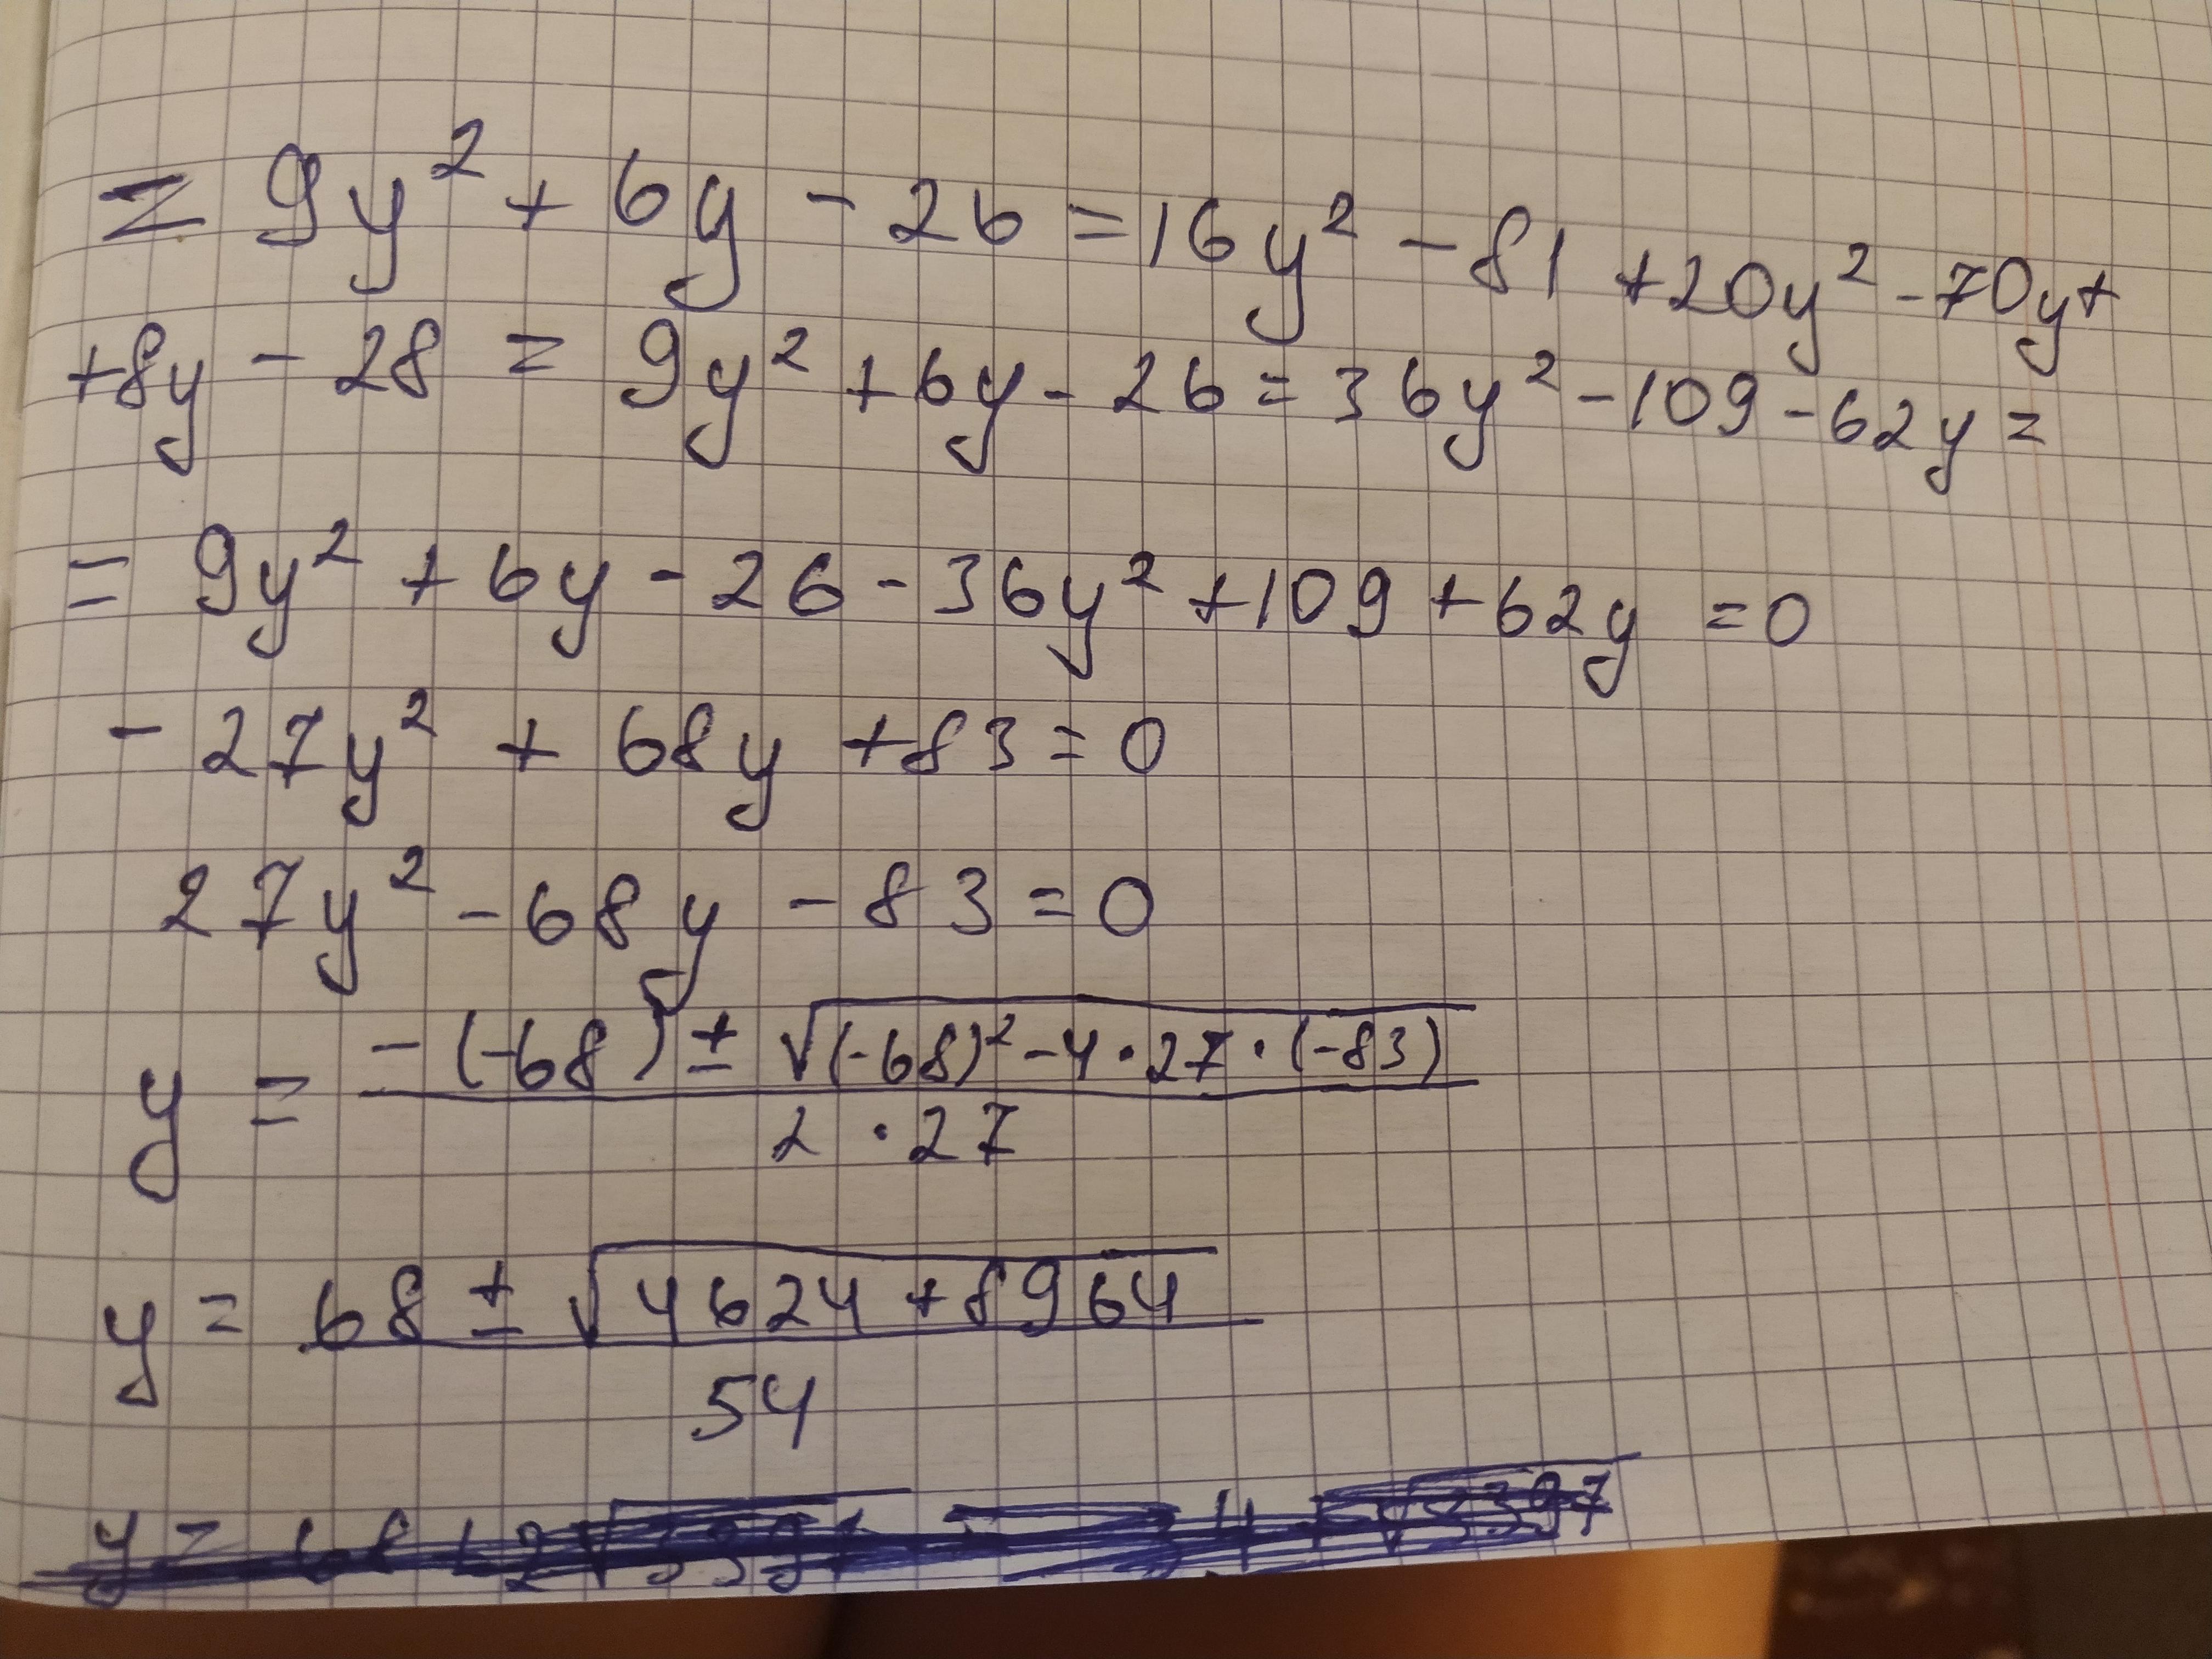 = 9y² + 6y - 26 = 16y² - 81 + 20y² - 70y +
+8y - 28 = 9y² + 6y - 26 = 36y² - 109 - 62y =
= 9y² + 6y - 26 - 36y² + 109 + 62y = 0
- 27y² + 68y + 83 = 0
27y² - 68y - 83 = 0
y = (-(-68) ± √((-68)² - 4 · 27 · (-83))) / (2 · 27)
y = (68 ± √(4624 + 8964)) / 54